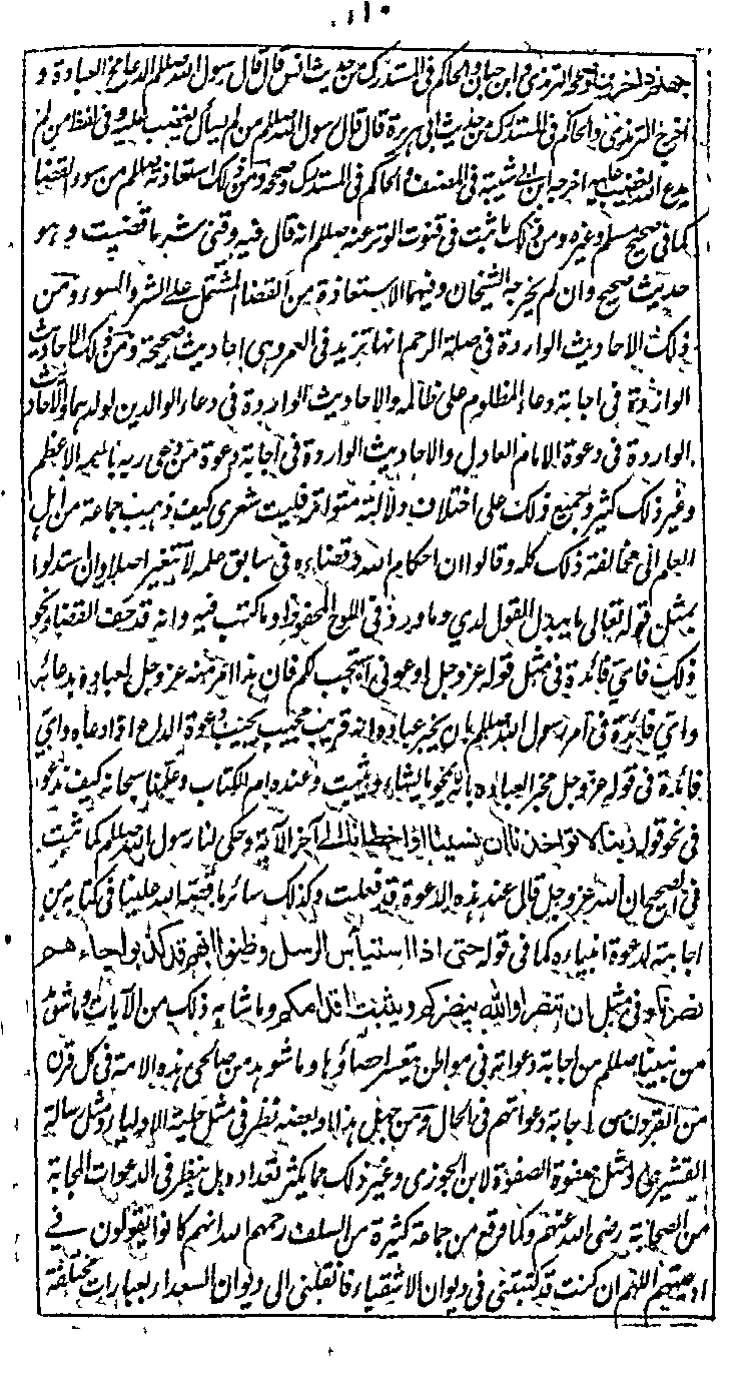 وصححه الترمذي وابن حبان والحاكم في المستدرك من حديث انس قال قال رسول الله صلعم الدعا مخ العبادة و
اخرج الترمذي والحاكم في المستدرك من حديث ابي هريرة قال قال رسول الله صلعم من لم يسأل الله يغضب عليه وفي لفظ من لم
يدع الله يغضب عليه اخرجه ابن ابي شيبة في المصنف والحاكم في المستدرك وصححه ومن ذلك استعاذته صلعم من سوء القضا
كما في صحيح مسلم وغيره ومن ذلك ما ثبت في قنوت الوتر عنه صلعم انه قال فيه وقني شر ما قضيت و هو
حديث صحيح وان لم يخرجه الشيخان وفيهما الاستعاذة من القضا المشتمل على الشر والسوء ومن
ذلك الاحاديث الواردة في صلة الرحم انها تزيد في العمر وهي احاديث صحيحة ومن ذلك الاحاديث
الواردة في اجابة دعاء المظلوم على ظالمه والاحاديث الواردة في دعاء الوالدين لولدهما والاحاديث
الواردة في دعوة الامام العادل والاحاديث الواردة في اجابة دعوة من دعى ربه باسمه الاعظم
وغير ذلك كثير وجميع ذلك على اختلاف دلالته متواتر فليت شعري كيف ذهبت جماعة من اهل
العلم الى مخالفة ذلك كله وقالوا ان احكام الله وقضاءه في سابق علمه لا تتغير اصلا وان استدلوا
بمثل قوله تعالى ما يبدل القول لدي وما ورد في اللوح المحفوظ وما كتب فيه وانه قد جف القضا ونحو
ذلك فاي فائدة في مثل قوله عز وجل ادعوني استجب لكم فان هذا امر منه عز وجل لعباده بدعائه
واي فائدة في امر رسول الله صلعم بان يخبر عباده انه قريب مجيب يجيب دعوة الداع اذا دعاه واي
فائدة في قوله عز وجل مخبر العباده بانه يمحو ما يشاء ويثبت وعنده ام الكتاب وعلمنا سبحانه كيف ندعو
في نحو قوله ربنا لا تؤاخذنا ان نسينا او اخطانا الى آخر الآية وحكى لنا رسول الله صلعم كما ثبت
في الصحيح ان الله عز وجل قال عند هذه الدعوة قد فعلت وكذلك سائر ما قصه الله علينا في كتابه من
اجابته لدعوة انبياءه كما في قوله حتى اذا استيأس الرسل وظنوا انهم قد كذبوا جاءهم
نصرنا وفي مثل ان تنصروا الله ينصركم ويثبت اقدامكم وما شابه ذلك من الآيات وما شوهد
من نبينا صلعم من اجابة دعواته في مواطن يتعسر احصاؤها وما شوهد من صالحي هذه الامة في كل قرن
من القرون من اجابة دعواتهم في الحال ومن جهل هذا او بعضه نظر في مثل حلية الاولياء ومثل رسالة
القشيري ومثل صفوة الصفوة لابن الجوزي وغير ذلك مما يكثر تعداده بل ينظر في الدعوات المجابة
من الصحابة رضي الله عنهم وكما وقع من جماعة كثيرة من السلف رحمهم الله انهم كانوا يقولون في
ادعيتهم اللهم ان كنت قد كتبتني في ديوان الاشقياء فانقلني الى ديوان السعداء بعبارات مختلفة